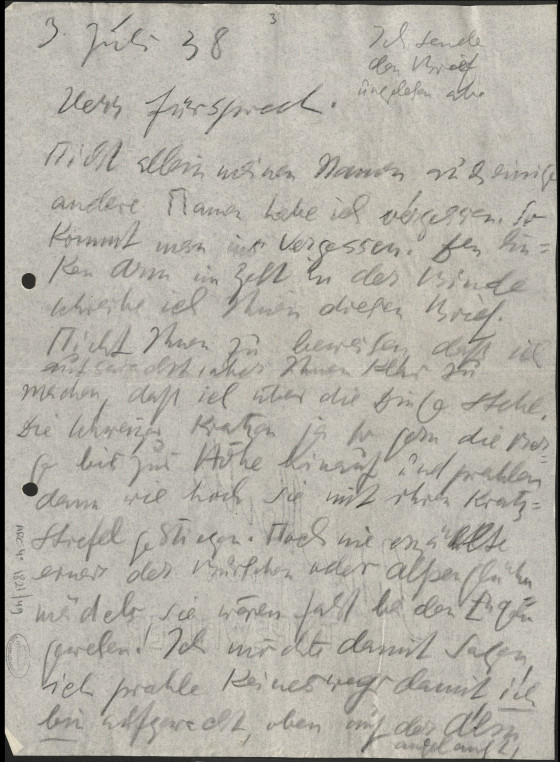 3
3. Juli 38
Ich sende
den Brief
ungelesen
Herr Fürsprech.
Nicht allein meinen Namen auch einige
andere Namen habe ich vergessen. So
kommt man ins Vergessen. Den lin=
ken Arm im Zelt in der Binde
schreibe ich Ihnen diesen Brief.
Nicht Ihnen zu beweisen, daß ich
aufgewacht, aber Ihnen klar zu
machen, daß ich über die Dinge stehe.
Die Schweizer kratzen ja so gern die Ber=
ge bis zur Höhe hinauf und prahlen
dann wie hoch sie mit ihren Kratz=
stiefel gestiegen. Noch nie erzählte
einer der Burschen oder Alpenglühn
mädels, sie wären fast bei den Engeln
gewesen! Ich möchte damit sagen,
ich prahle keineswegs damit ich
bin aufgewacht, oben auf der Alm
angelangt